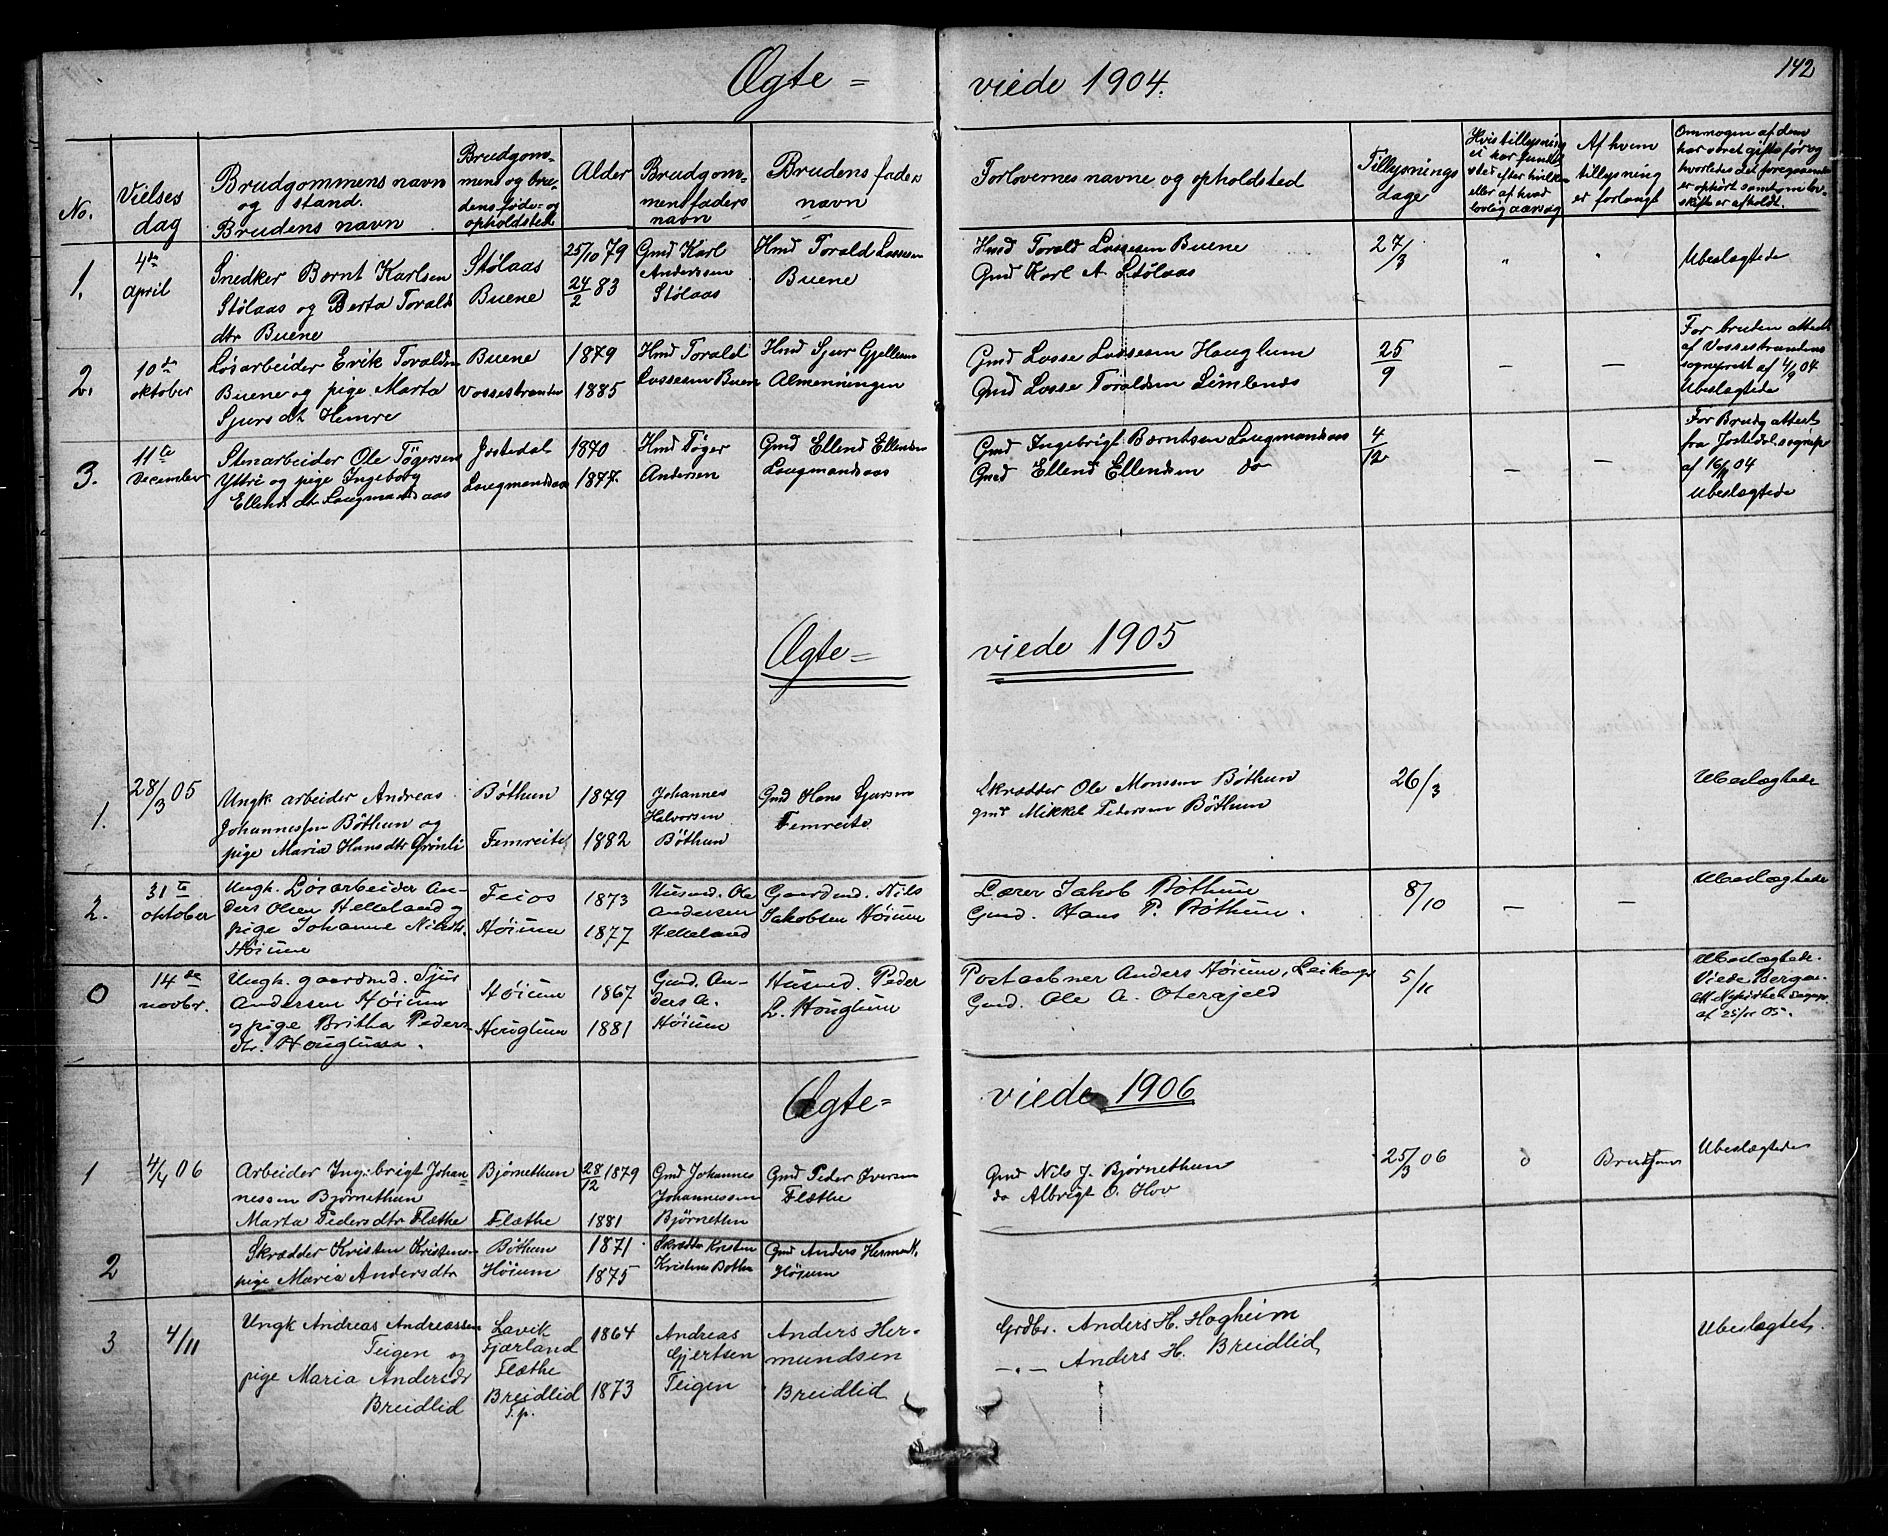 142
Ægte = viede 1904.
No.
Vielses
dag
Brudgommens navn
og stand.
Brudens navn
Brudgom-
mens og bru-
dens føde- og
opholdsted
Alder
Brudgom-
mens faders
navn
Brudens fader
navn
Forlovernes navne og opholdsted
Tillysnings
dage
Hvis tillysning
ei har fundet
sted efter hvilken
eller af hvad
lovlig aarsag
Af hvem
tillysning
er forlangt
Om nogen af dem
har været gifte før og
hvorledes det foregaaende
er ophørt samt om
skifte er afholdt.
1.
4de
april
Snedker Bernt Karlsen
Stølaas og Berta Toralds
dtr Buene
Stølaas
Buene
25/10 79
24/2 83
Gmd Karl
Anderssen
Stølaas
Hmd Torald Lassesen
Buene
Hmd Torald Lassesen Buene
Gmd Karl A. Stølaas
27/3
"
"
Ubeslægtede
2.
10de
oktober
Løsarbeider Erik Toraldsen
Buene og pige Marta
Sjursdt. Hemre
Buene
Vossestranden
1879
1885
Hmd Torald
Lassesen Buene
Hmd Sjur Gjellesen
Almenningen
Gmd Lasse Lassesen Hauglum
Gmd Lasse Toraldsen Limlends
25/9
—
—
For bruden attest
af Vossestrandens
sogneprest af 4/9 04
Ubeslægtede
3.
11te
December
Stenarbeider Ole Tøgersen
Yttri og pige Ingeborg
Ellends dt. Laugmandsaas
Jostedal
Laugmandsaas
1840
1847.
Hmd Tøger
Andersen
Gmd Ellend Ellendsen
Laugmandsaas
Gmd Ingebrigt Berntsen Laugmandsaas
Gmd Ellend Ellendsen do
4/12
—
—
For Brudg. attest
fra Jostedal sognepr
af 04
Ubeslægtede
Ægte = viede 1905
1.
28/3 05
Ungk arbeider Andreas
Johannessen Bøthun og
pige Maria Hansdtr Grønli
Bøthun
Femreite
1879
1882
Johannes
Halvorsen
Bøthun
Gmd Hans Sjursen
Femreite
Skrædder Ole Monssen Bøthun
gmd Mikkel Pedersen Bøthun
26/3
Ubeslægtede
2.
31te
oktober
Ungk. Løsarbeider An-
ders Olsen Helleland og
pige Johanne Nilsdtr.
Høium
Feios
Høium
1873
1877
Husmd. Ole
Andersen
Helleland
Gaardmd. Nils
Jakobsen Høium
Lærer Jakob Bøthun
Gmd. Hans P. Bøthun.
8/10
—
—
Ubeslægtede
0
14de
novbr.
Ungk. gaardmd. Sjur
Andersen Høium
og pige Britha Peders-
dtr. Houglum.
Høium
Houglum
1867
1881
Gmd. An-
ders A.
Høium
Husmd. Peder
L. Houglum
Postaabner Anders Høium, Leikanger
Gmd. Ole A. Oterajeld
5/11
Ubeslægtede.
Viede Bergen.
att Nykirken Sognepr.
af 05.
Ægte= viede 1906
1
4/4 06
Arbeider Ingebrigt Johan-
nessen Bjørnethun
Marta Pedersdtr Flæthe
Bjørnethun
Flæthe
28/12 1879
1881
Gmd Johannes
Johannessen
Bjørnetun
Gmd Peder Iversen
Flæthe
Gmd Nils J. Bjørnethun
do Albrigt O. Hov
25/3 06
o
Brudgom
Ubeslægtede
2
Skrædder Kristen Kristens.
pige Maria Andersdtr
Bøthun
Høium
1871
1875
Skrædder Kristen
Kristens Bøthun
Gmd Anders Hermund.
Høium
3
4/11
Ungk Andreas Andreassen
Teigen og
pige Maria Andersdtr
Breidlid
Lavik
Fjærland
Flæthe
Breidlid
S.p.
1864
1873
Andreas
Gjertsen
Teigen
Anders Her-
mundsen
Breidlid
Grdbr. Anders H. Hagheim
—"— Anders H. Breidlid
Ubeslægtet.